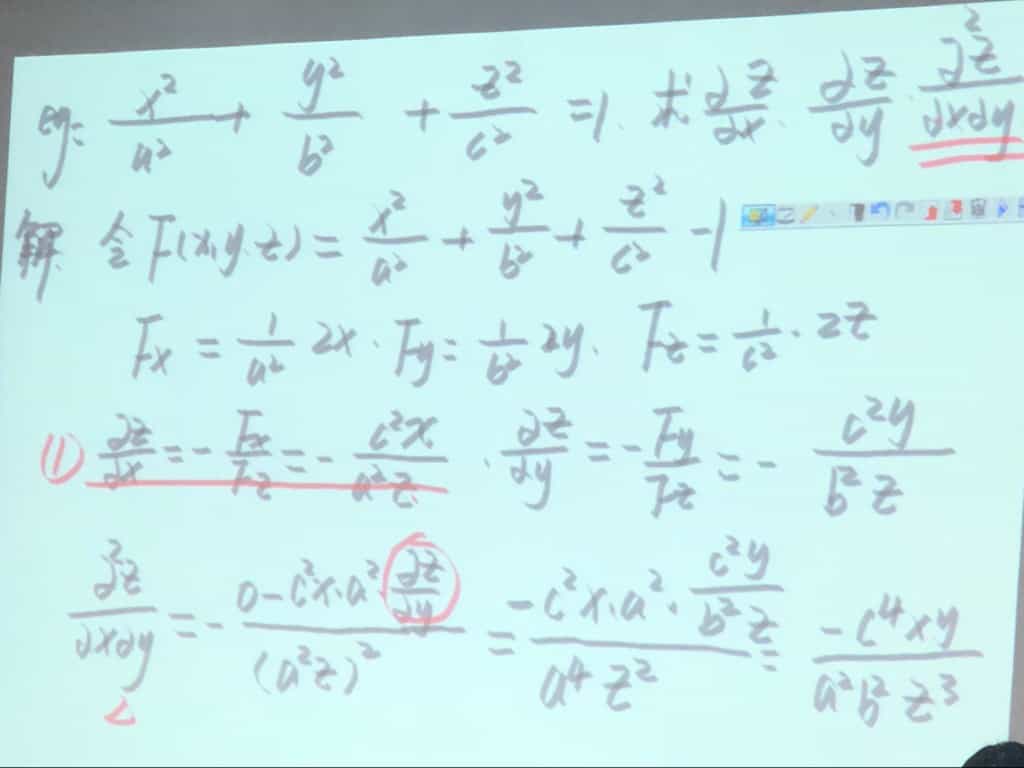 eg: x²/a² + y²/b² + z²/c² = 1. 求 ∂z/∂x. ∂z/∂y. ∂²z/∂x∂y
解. 令 F(x,y.z) = x²/a² + y²/b² + z²/c² - 1
Fx = 1/a² 2x. Fy = 1/b² 2y. Fz = 1/c² · 2z
(1) ∂z/∂x = - Fx/Fz = - c²x/a²z. ∂z/∂y = - Fy/Fz = - c²y/b²z
∂²z/∂x∂y = - (0 - c²x·a²·∂z/∂y)/(a²z)² = (-c²x·a²·c²y/b²z)/(a⁴z²) = -c⁴xy/a²b²z³